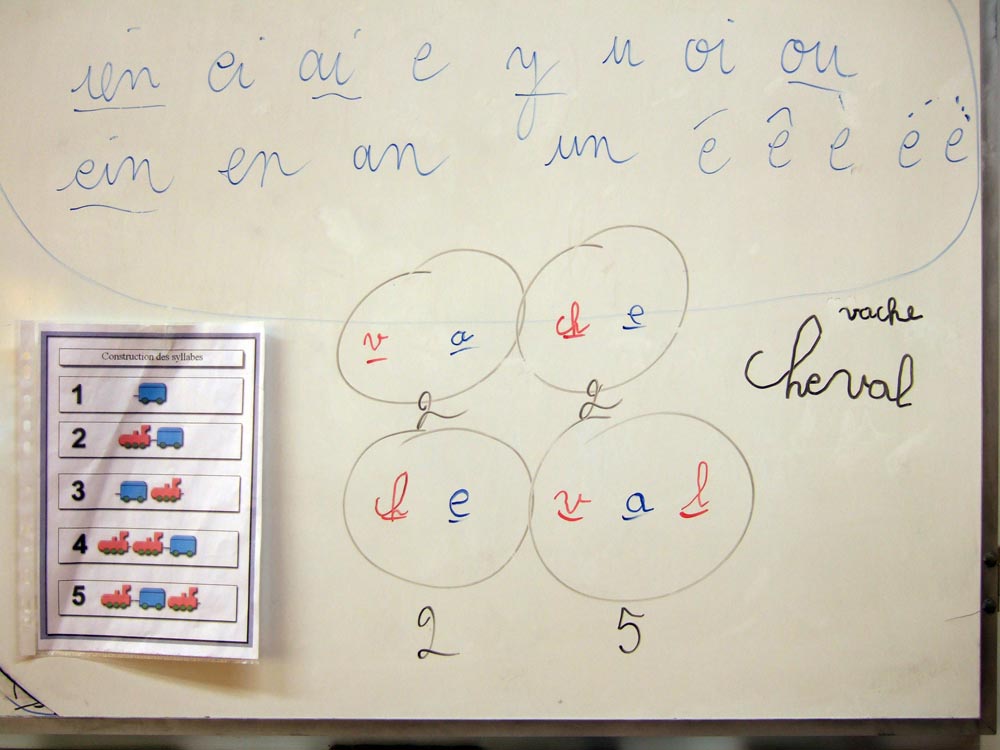 ien ei ai e y u oi ou
ein en an un é ê è ë ë
v a ch e
2 2
vache
cheval
ch e v a l
2 5
Construction des syllabes
1
2
3
4
5